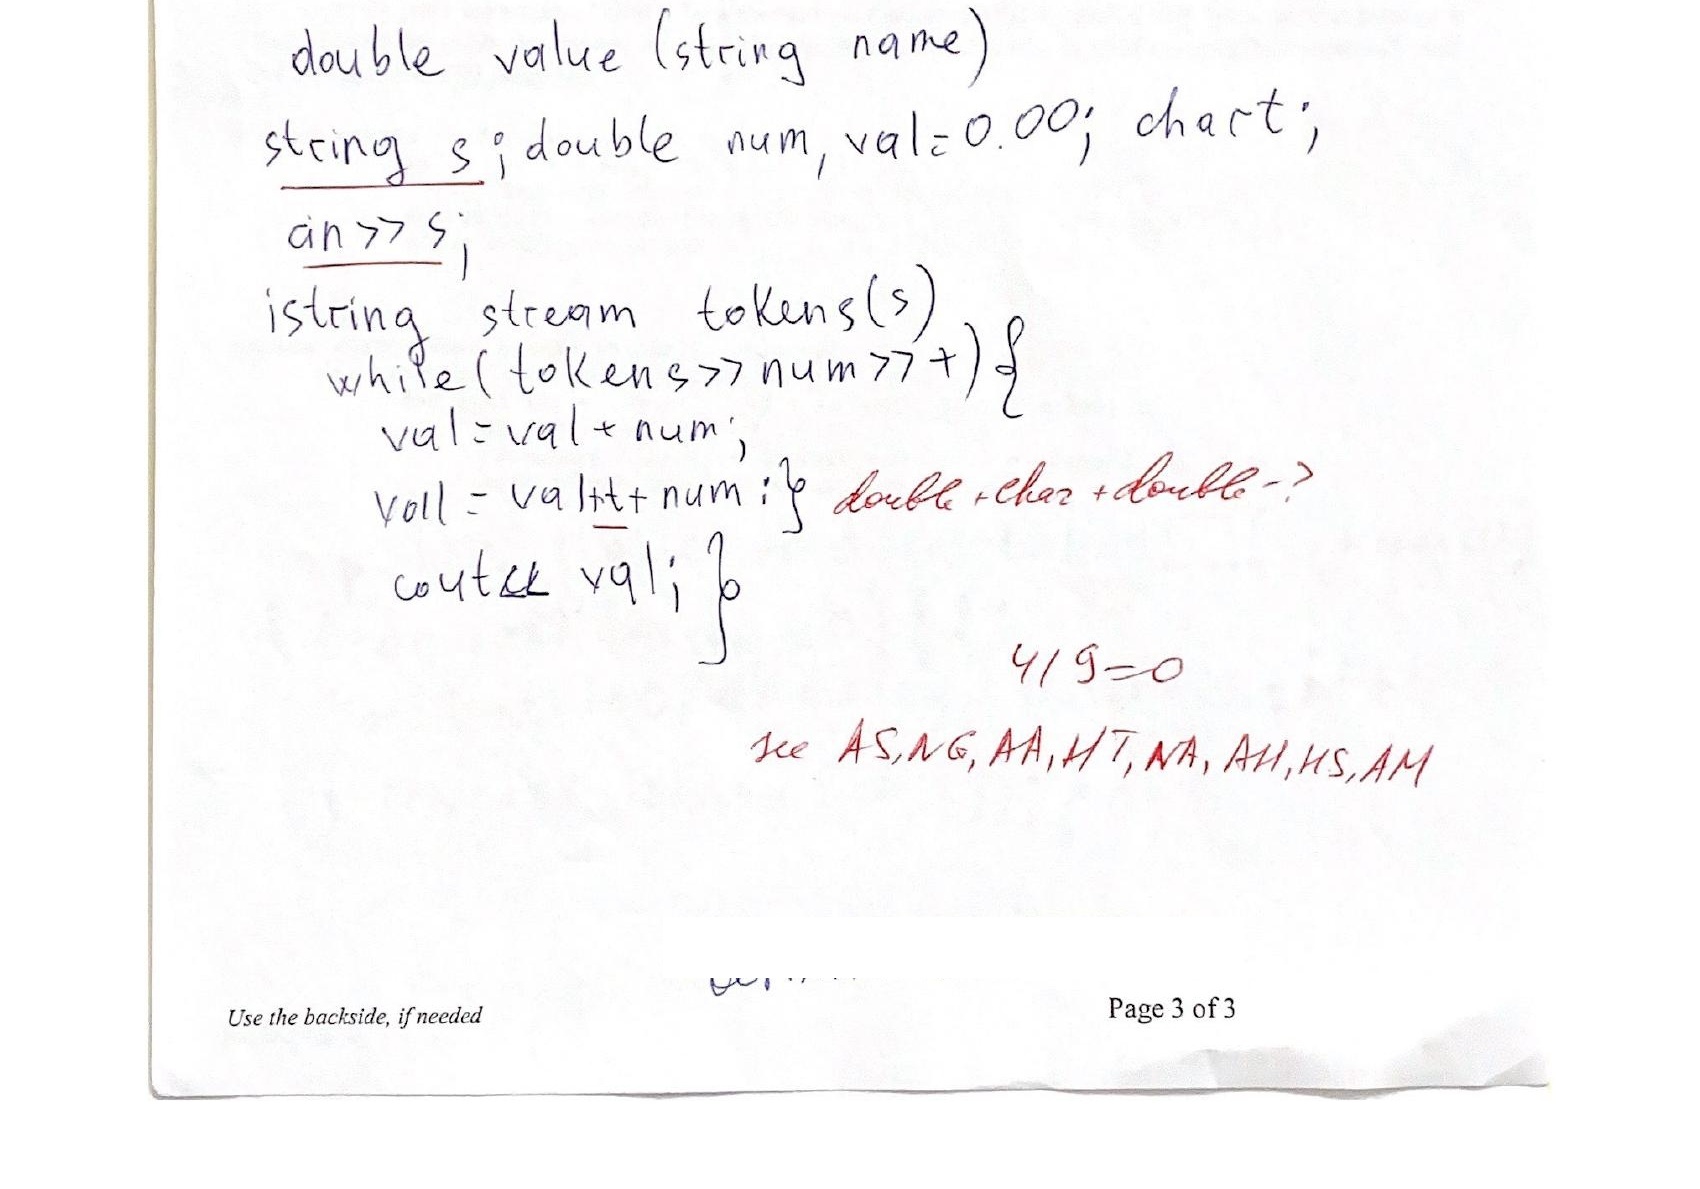 double value (string name)
string s; double num, val=0.00; char t;
cin >> s;
istring stream tokens(s)
while( tokens >> num >> t) {
val = val + num;
val = val+t+ num ; } double + char + double - ?
cout << val; }
4/9=0
see AS, NG, AA, HT, NA, AH, HS, AM
Use the backside, if needed
Page 3 of 3